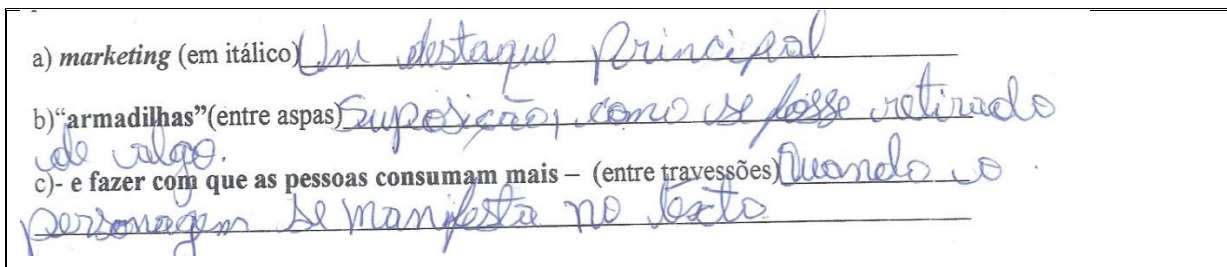 a) marketing (em itálico) Um destaque principal
b)“armadilhas”(entre aspas) Suposição, como se fosse retirado
de algo.
c)- e fazer com que as pessoas consumam mais – (entre travessões) Quando o
personagem se manifesta no texto